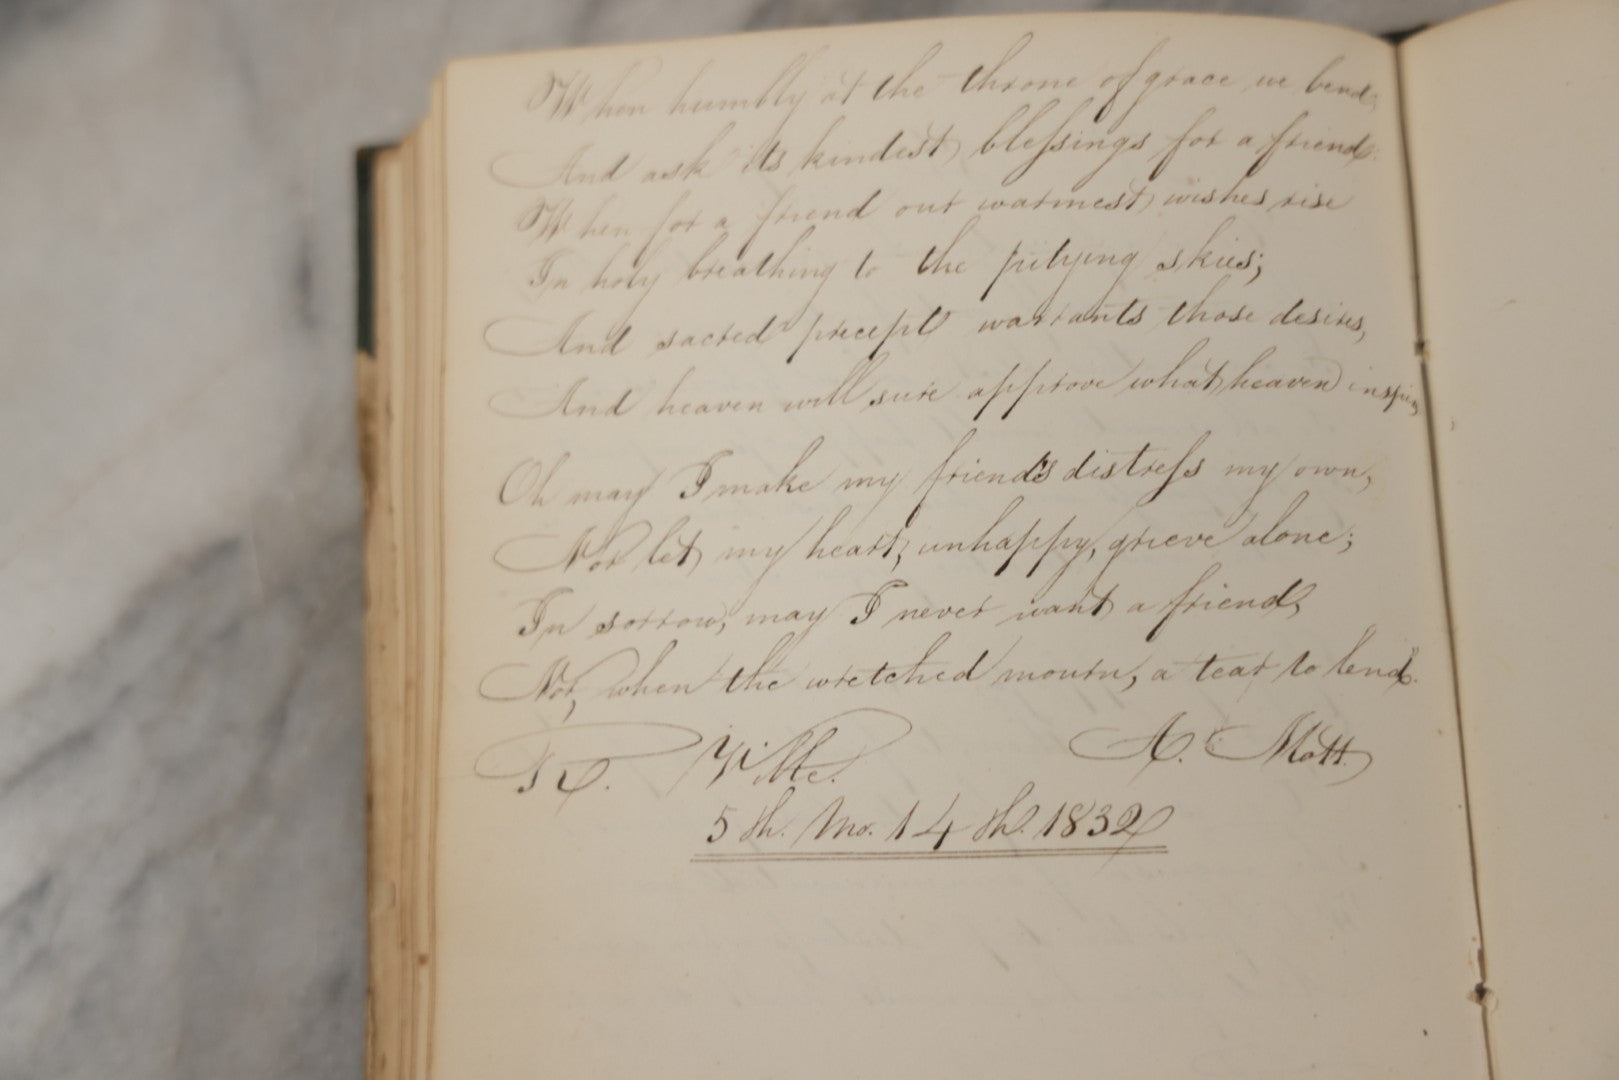 When humbly at the throne of grace we bend,
And ask its kindest blessings for a friend:
When for a friend our warmest wishes rise
In holy breathing to the pitying skies;
And sacred precept warrants those desires,
And heaven will sure approve what heaven inspires
Oh may I make my friend's distress my own,
Nor let my heart, unhappy, grieve alone;
In sorrow, may I never want a friend,
Nor, when the wretched mourn, a tear to lend.
Ville. A. Mott.
5th. Mo. 14th. 1832